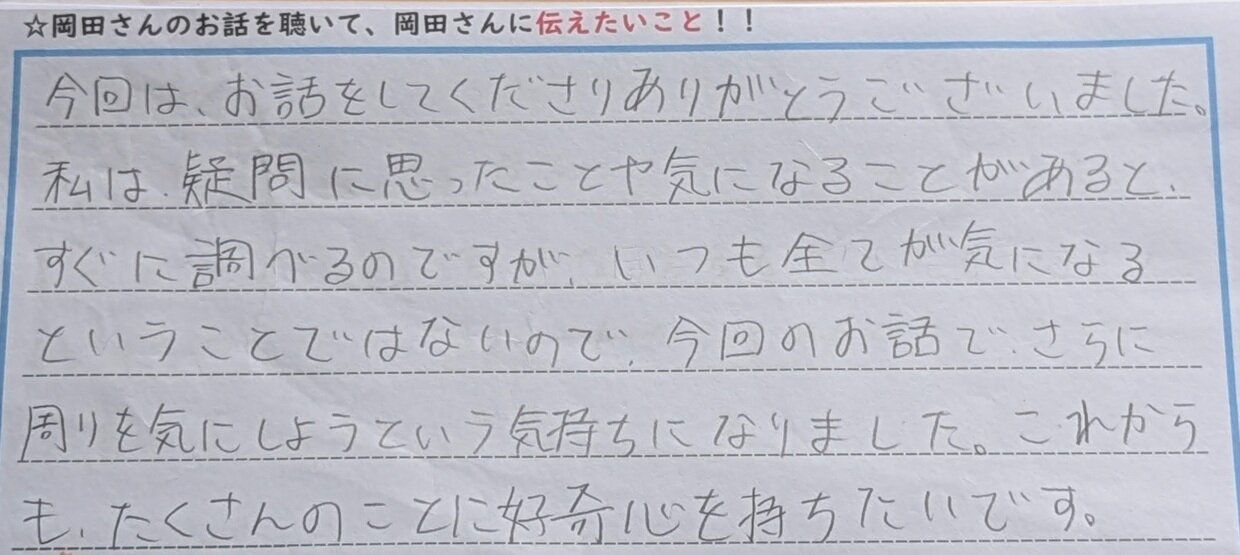 ☆岡田さんのお話を聴いて、岡田さんに伝えたいこと！！
今回は、お話をしてくださりありがとうございました。
私は、疑問に思ったことや気になることがあると、
すぐに調べるのですが、いつも全てが気になる
ということではないので、今回のお話で、さらに
周りを気にしようという気持ちになりました。これから
も、たくさんのことに好奇心を持ちたいです。